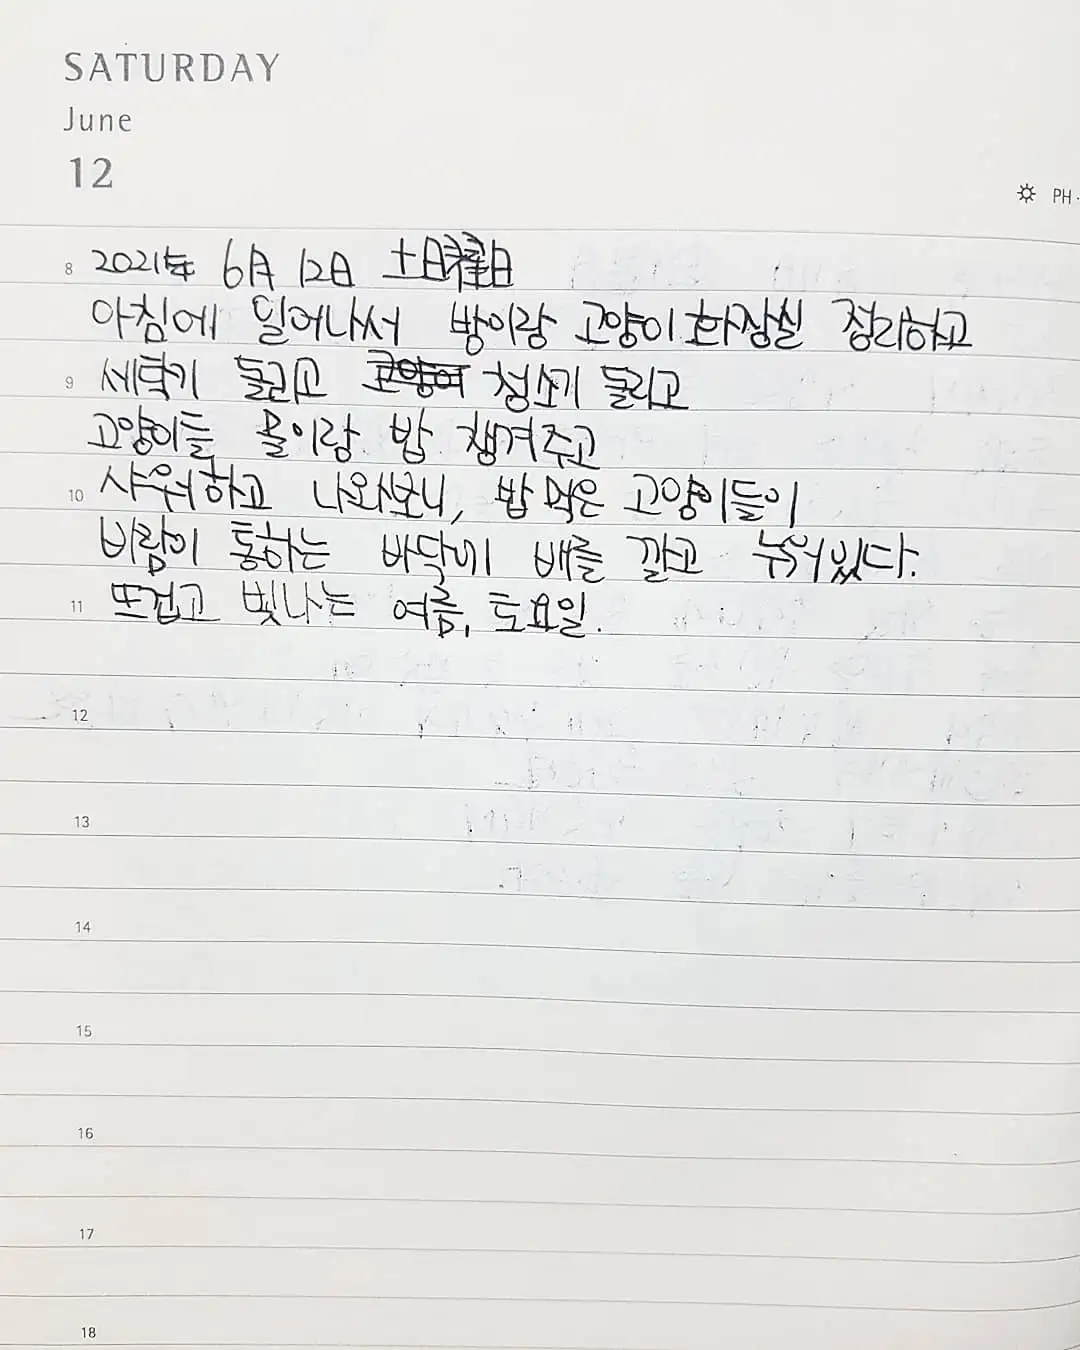 SATURDAY
June
12
PH
8 2021年 6月 12日 土曜日
아침에 일어나서 방이랑 고양이 화장실 정리하고
9 세탁기 돌리고 청소기 돌리고
고양이들 물이랑 밥 챙겨주고
10 샤워하고 나와보니, 밥 먹은 고양이들이
바람이 통하는 바닥에 배를 깔고 누워있다.
11 뜨겁고 빛나는 여름, 토요일.
12
13
14
15
16
17
18